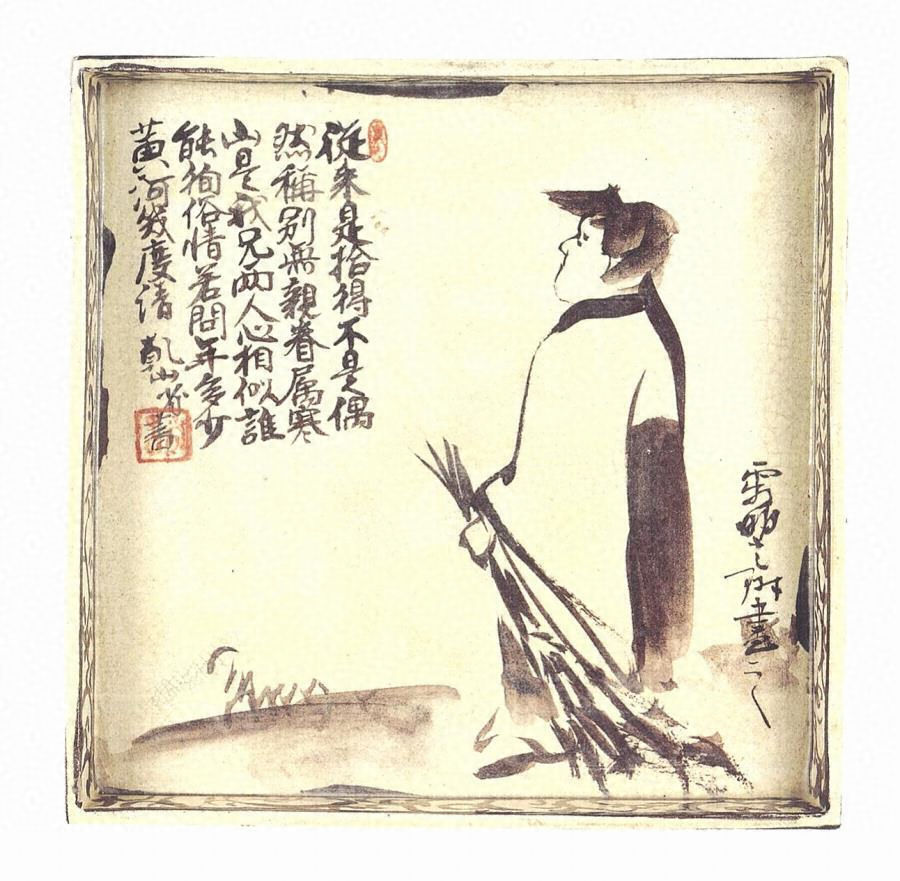 從来是拾得不是偶
然稱別無親眷属寒
山是我兄两人心相似誰
能徇俗情若問年多少
黄河幾度清 乾山省書
畫之